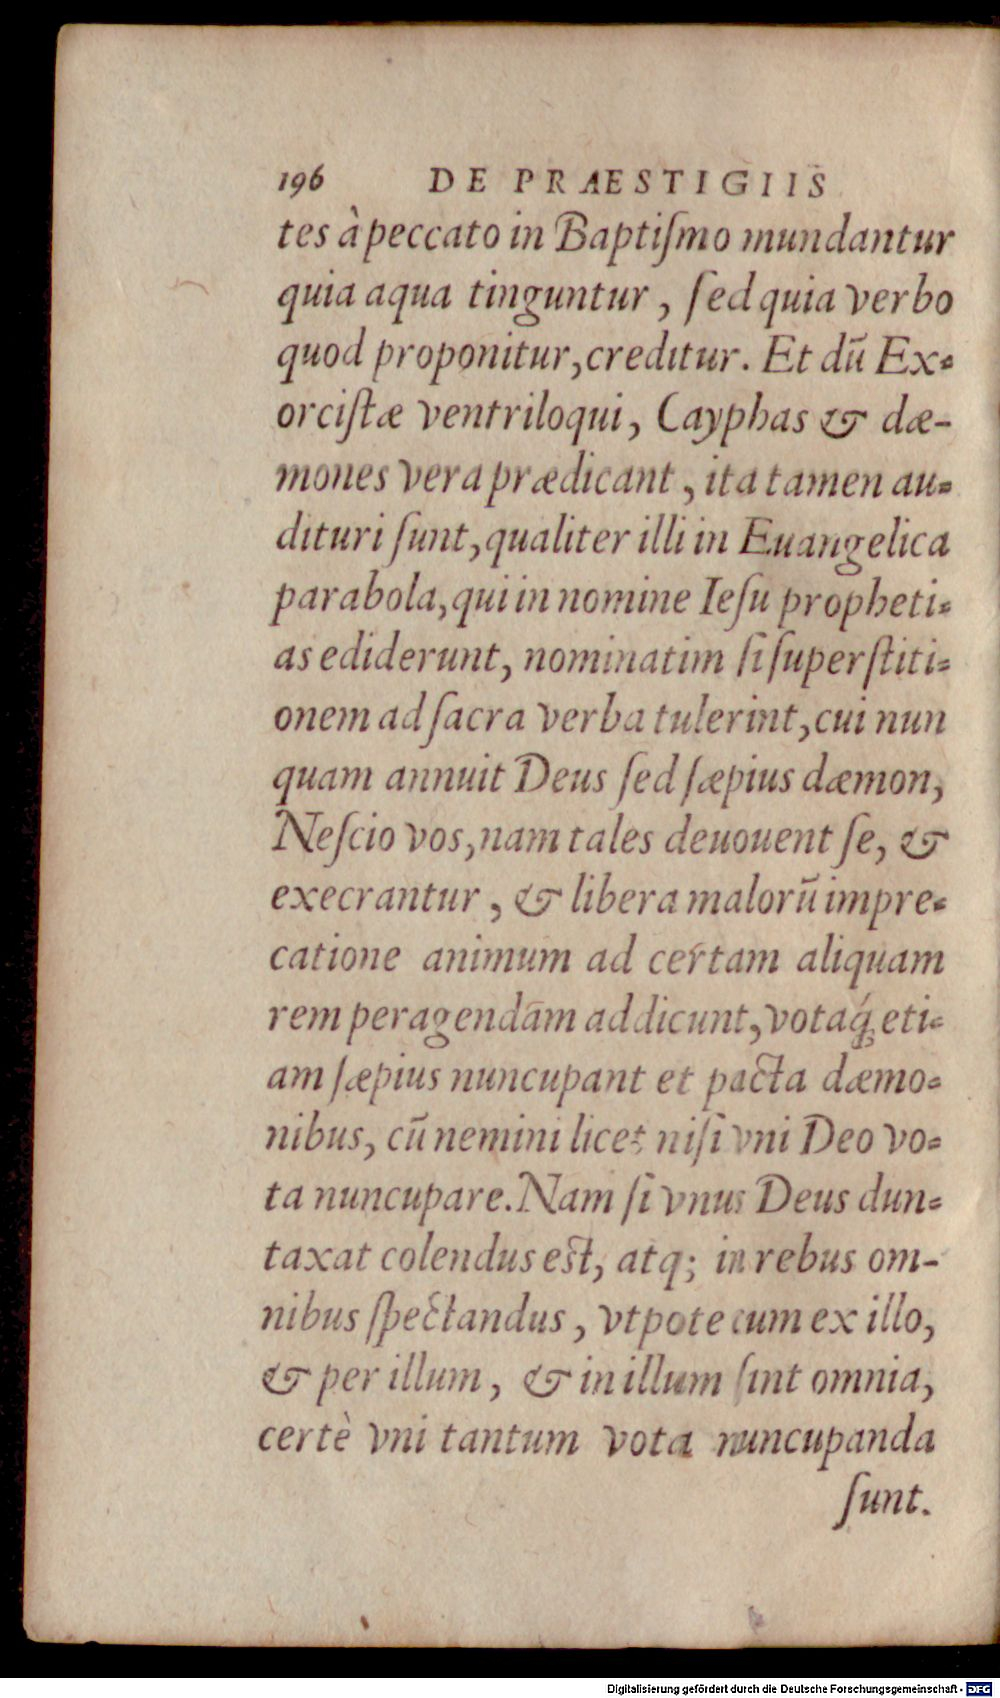 196 DE PRAESTIGIIS
tes à peccato in Baptiſmo mundantur
quia aqua tinguntur, ſed quia verbo
quod proponitur, creditur. Et dū Ex-
orciſtæ ventriloqui, Cayphas & dæ-
mones vera prædicant, ita tamen au-
dituri ſunt, qualiter illi in Euangelica
parabola, qui in nomine Ieſu propheti-
as ediderunt, nominatim ſi ſuperſtiti-
onem ad ſacra verba tulerint, cui nun
quam annuit Deus ſed ſæpius dæmon,
Neſcio vos, nam tales deuouent ſe, &
execrantur, & libera malorū impre-
catione animum ad certam aliquam
rem peragendam addicunt, votaq́; eti-
am ſæpius nuncupant et pacta dæmo-
nibus, cū nemini licet niſi vni Deo vo-
ta nuncupare. Nam ſi vnus Deus dun-
taxat colendus est, atq; in rebus om-
nibus ſpectandus, vtpote cum ex illo,
& per illum, & in illum ſint omnia,
certè vni tantum vota nuncupanda
ſunt.
Digitalisierung gefördert durch die Deutsche Forschungsgemeinschaft - DFG